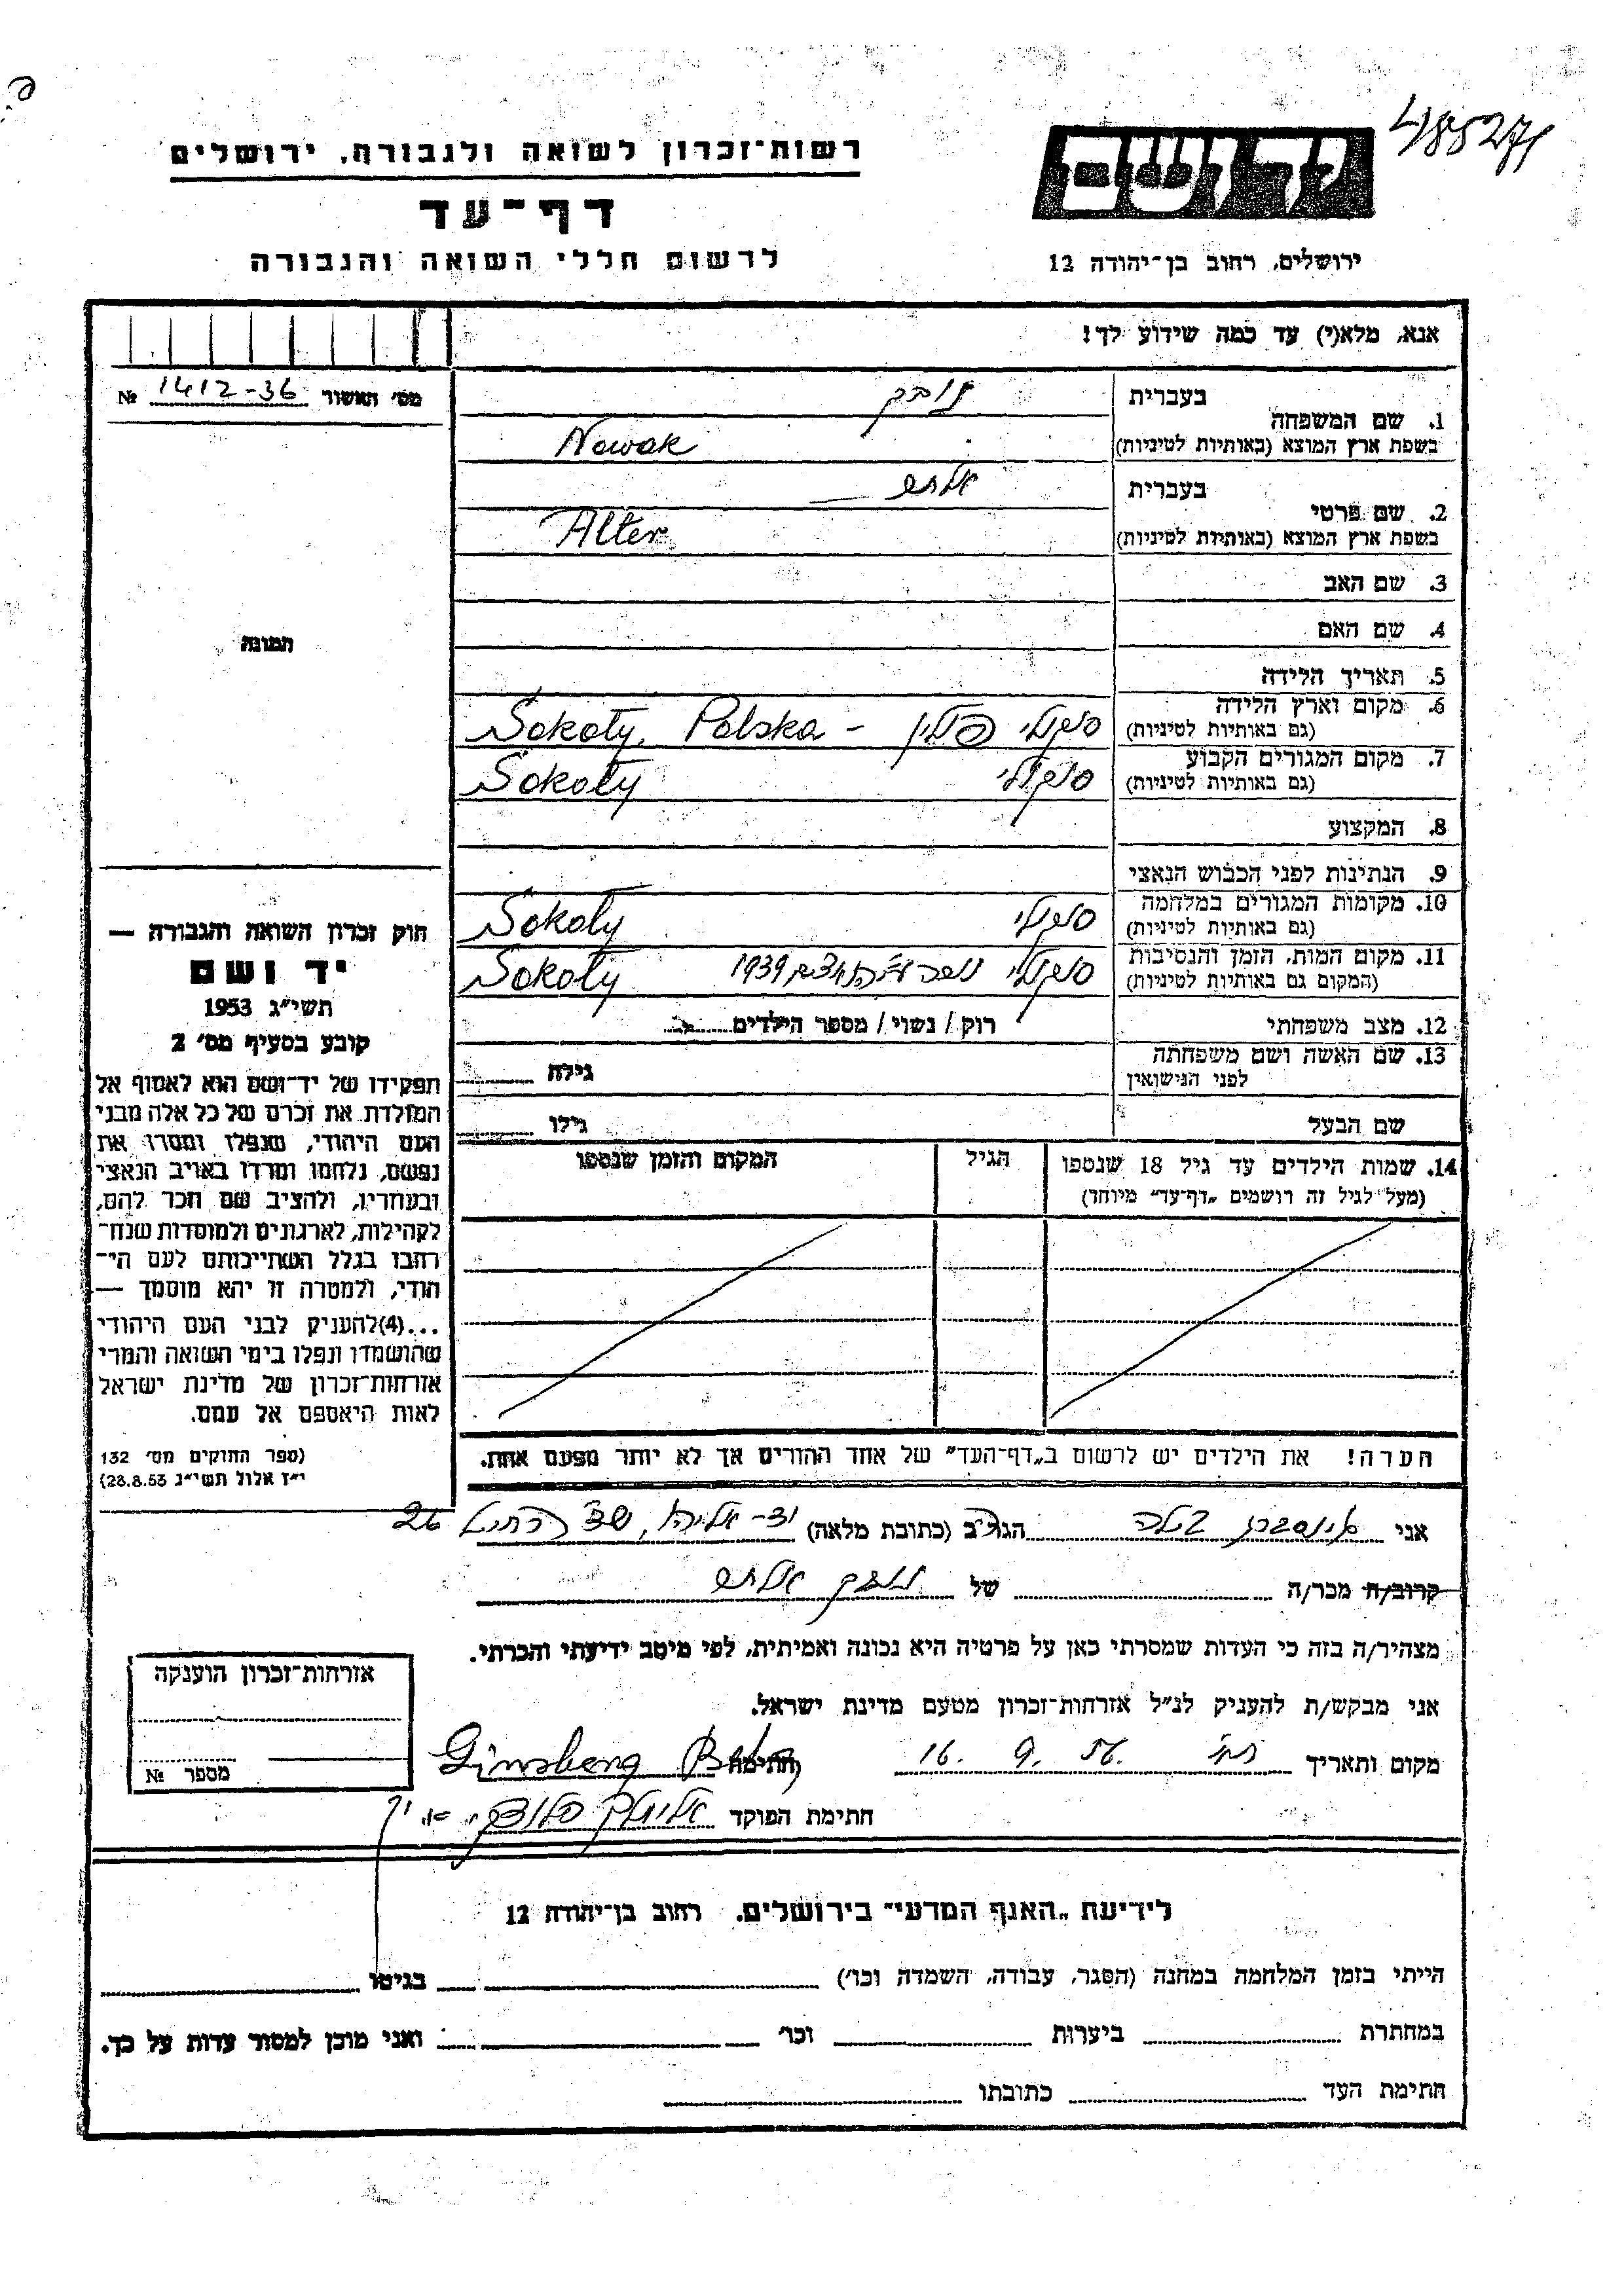 485271
יד ושם
רשות־זכרון לשואה ולגבורה, ירושלים
דף־עד
לרשום חללי השואה והגבורה
ירושלים, רחוב בן־יהודה 12
אנא, מלא(י) עד כמה שידוע לך!
מס׳ האשור 1412-36 №
תמונה
1. שם המשפחה
בעברית נובק
בשפת ארץ המוצא (באותיות לטיניות) Nowak
2. שם פרטי
בעברית אלתר
בשפת ארץ המוצא (באותיות לטיניות) Alter
3. שם האב
4. שם האם
5. תאריך הלידה
6. מקום וארץ הלידה
(גם באותיות לטיניות) סוקולי פולין - Sokoły, Polska
7. מקום המגורים הקבוע
(גם באותיות לטיניות) סוקולי Sokoły
8. המקצוע
9. הנתינות לפני הכבוש הנאצי
10. מקומות המגורים במלחמה
(גם באותיות לטיניות) סוקולי Sokoły
11. מקום המות, הזמן והנסיבות
(המקום גם באותיות לטיניות) סוקולי 1939 Sokoły
12. מצב משפחתי רווק / נשוי / מספר הילדים
13. שם האשה ושם משפחתה
לפני הנישואין גילה
שם הבעל גילו
14. שמות הילדים עד גיל 18 שנספו הגיל המקום והזמן שנספו
(מעל לגיל זה רושמים „דף־עד״ מיוחד)
הערה! את הילדים יש לרשום ב„דף־העד״ של אחד ההורים אך לא יותר מפעם אחת.
חוק זכרון השואה והגבורה —
יד ושם
תשי״ג 1953
קובע בסעיף מס׳ 2
תפקידו של יד־ושם הוא לאסוף אל
המולדת את זכרם של כל אלה מבני
העם היהודי, שנפלו ומסרו את
נפשם, נלחמו ומרדו באויב הנאצי
ובעוזריו, ולהציב שם וזכר להם,
לקהילות, לארגונים ולמוסדות שנח־
רבו בגלל השתייכותם לעם הי־
הודי, ולמטרה זו יהא מוסמך —
...(4) להעניק לבני העם היהודי
שהושמדו ונפלו בימי השואה והמרי
אזרחות־זכרון של מדינת ישראל
לאות היאספם אל עמם.
(ספר החוקים מס׳ 132
י״ז אלול תשי״ג 28.8.53)
אני גינסברג בלה הגר/ה ב (כתובת מלאה) יד-אליהו, 26
קרוב/ה מכר/ה של נובק אלתר
מצהיר/ה בזה כי העדות שמסרתי כאן על פרטיה היא נכונה ואמיתית, לפי מיטב ידיעתי והכרתי.
אני מבקש/ת להעניק לנ״ל אזרחות־זכרון מטעם מדינת ישראל.
מקום ותאריך 16. 9. 56. חתימה Ginsberg Bela
חתימת הפוקד
אזרחות־זכרון הוענקה
מספר №
לידיעת „האגף המדעי״ בירושלים. רחוב בן־יהודה 12
הייתי בזמן המלחמה במחנה (הסגר, עבודה, השמדה וכו׳) בגיטו
במחתרת ביערות וכו׳ ואני מוכן למסור עדות על כך.
חתימת העד כתובתו